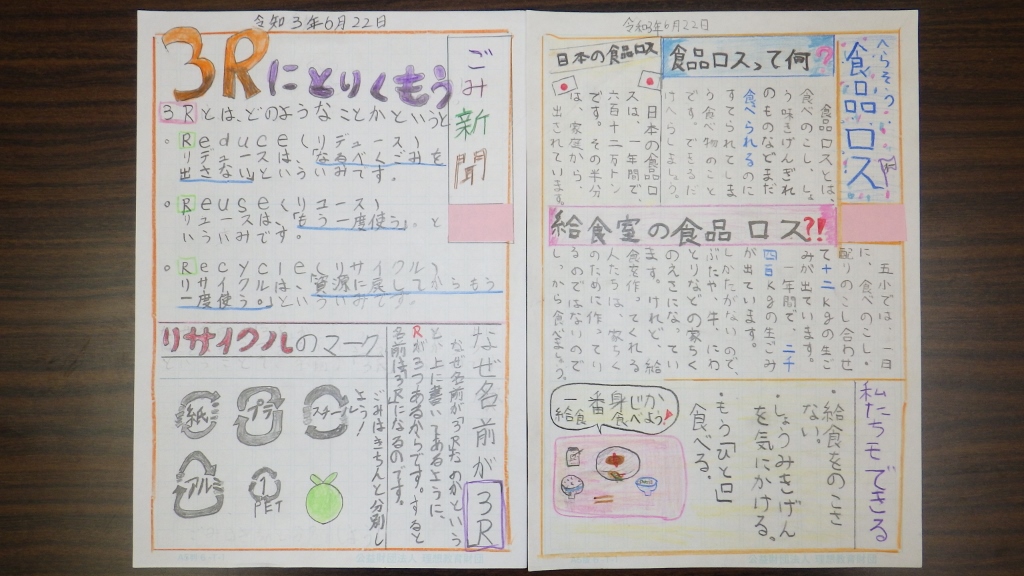 令和3年6月22日
ごみ新聞
3Rにとりくもう
3Rとは、どのようなことかというと
・Reduce(リデュース)
リデュースは、「なるべくごみを
出さない」といういみです。
・Reuse(リユース)
リユースは、「もう一度使う」と
いういみです。
・Recycle(リサイクル)
リサイクルは、「資源に戻してからもう
一度使う。」といういみです。
なぜ名前が3R
なぜ名前が「3R」なのかという
と、上に書いてあるように、
Rが3つあるからです。すると
名前は「3R」になるのです。
リサイクルのマーク
ごみはきちんと分別し
よう!
紙
プラ
スチール
アル
1
PET
令和3年6月22日
へらそう
食品ロス
食品ロスって何?
食品ロスとは、
食べのこし、しょ
う味きげんぎれ
のものなどまだ
食べられるのに
すてられてしま
う食べ物のこと
です。できるだ
けへらしましょう。
日本の食品ロス
日本の食品ロ
スは、一年間で、
六百十二万トン
です。その半分
は、家庭から、
出されています。
給食室の食品ロス?!
五小では、一日
に、食べのこし、
配りのこし合わせ
て十二kgの生ご
みが出ています。
一年間で、二千
四百kgの生ごみ
が出ています。
しかたがないので、
ぶたや、牛、にわ
とりなどの家ちく
のえさになってい
ます。けれど、給
食室作ってくれる
人たちは、家ちく
のために作ってい
るのではないので
しっから食べよう。
私たちもできる
・給食をのこさ
ない。
・しょうみきげん
を気にかける。
・もう「ひと口」
食べる。
一番身じか
給食 食べよう!